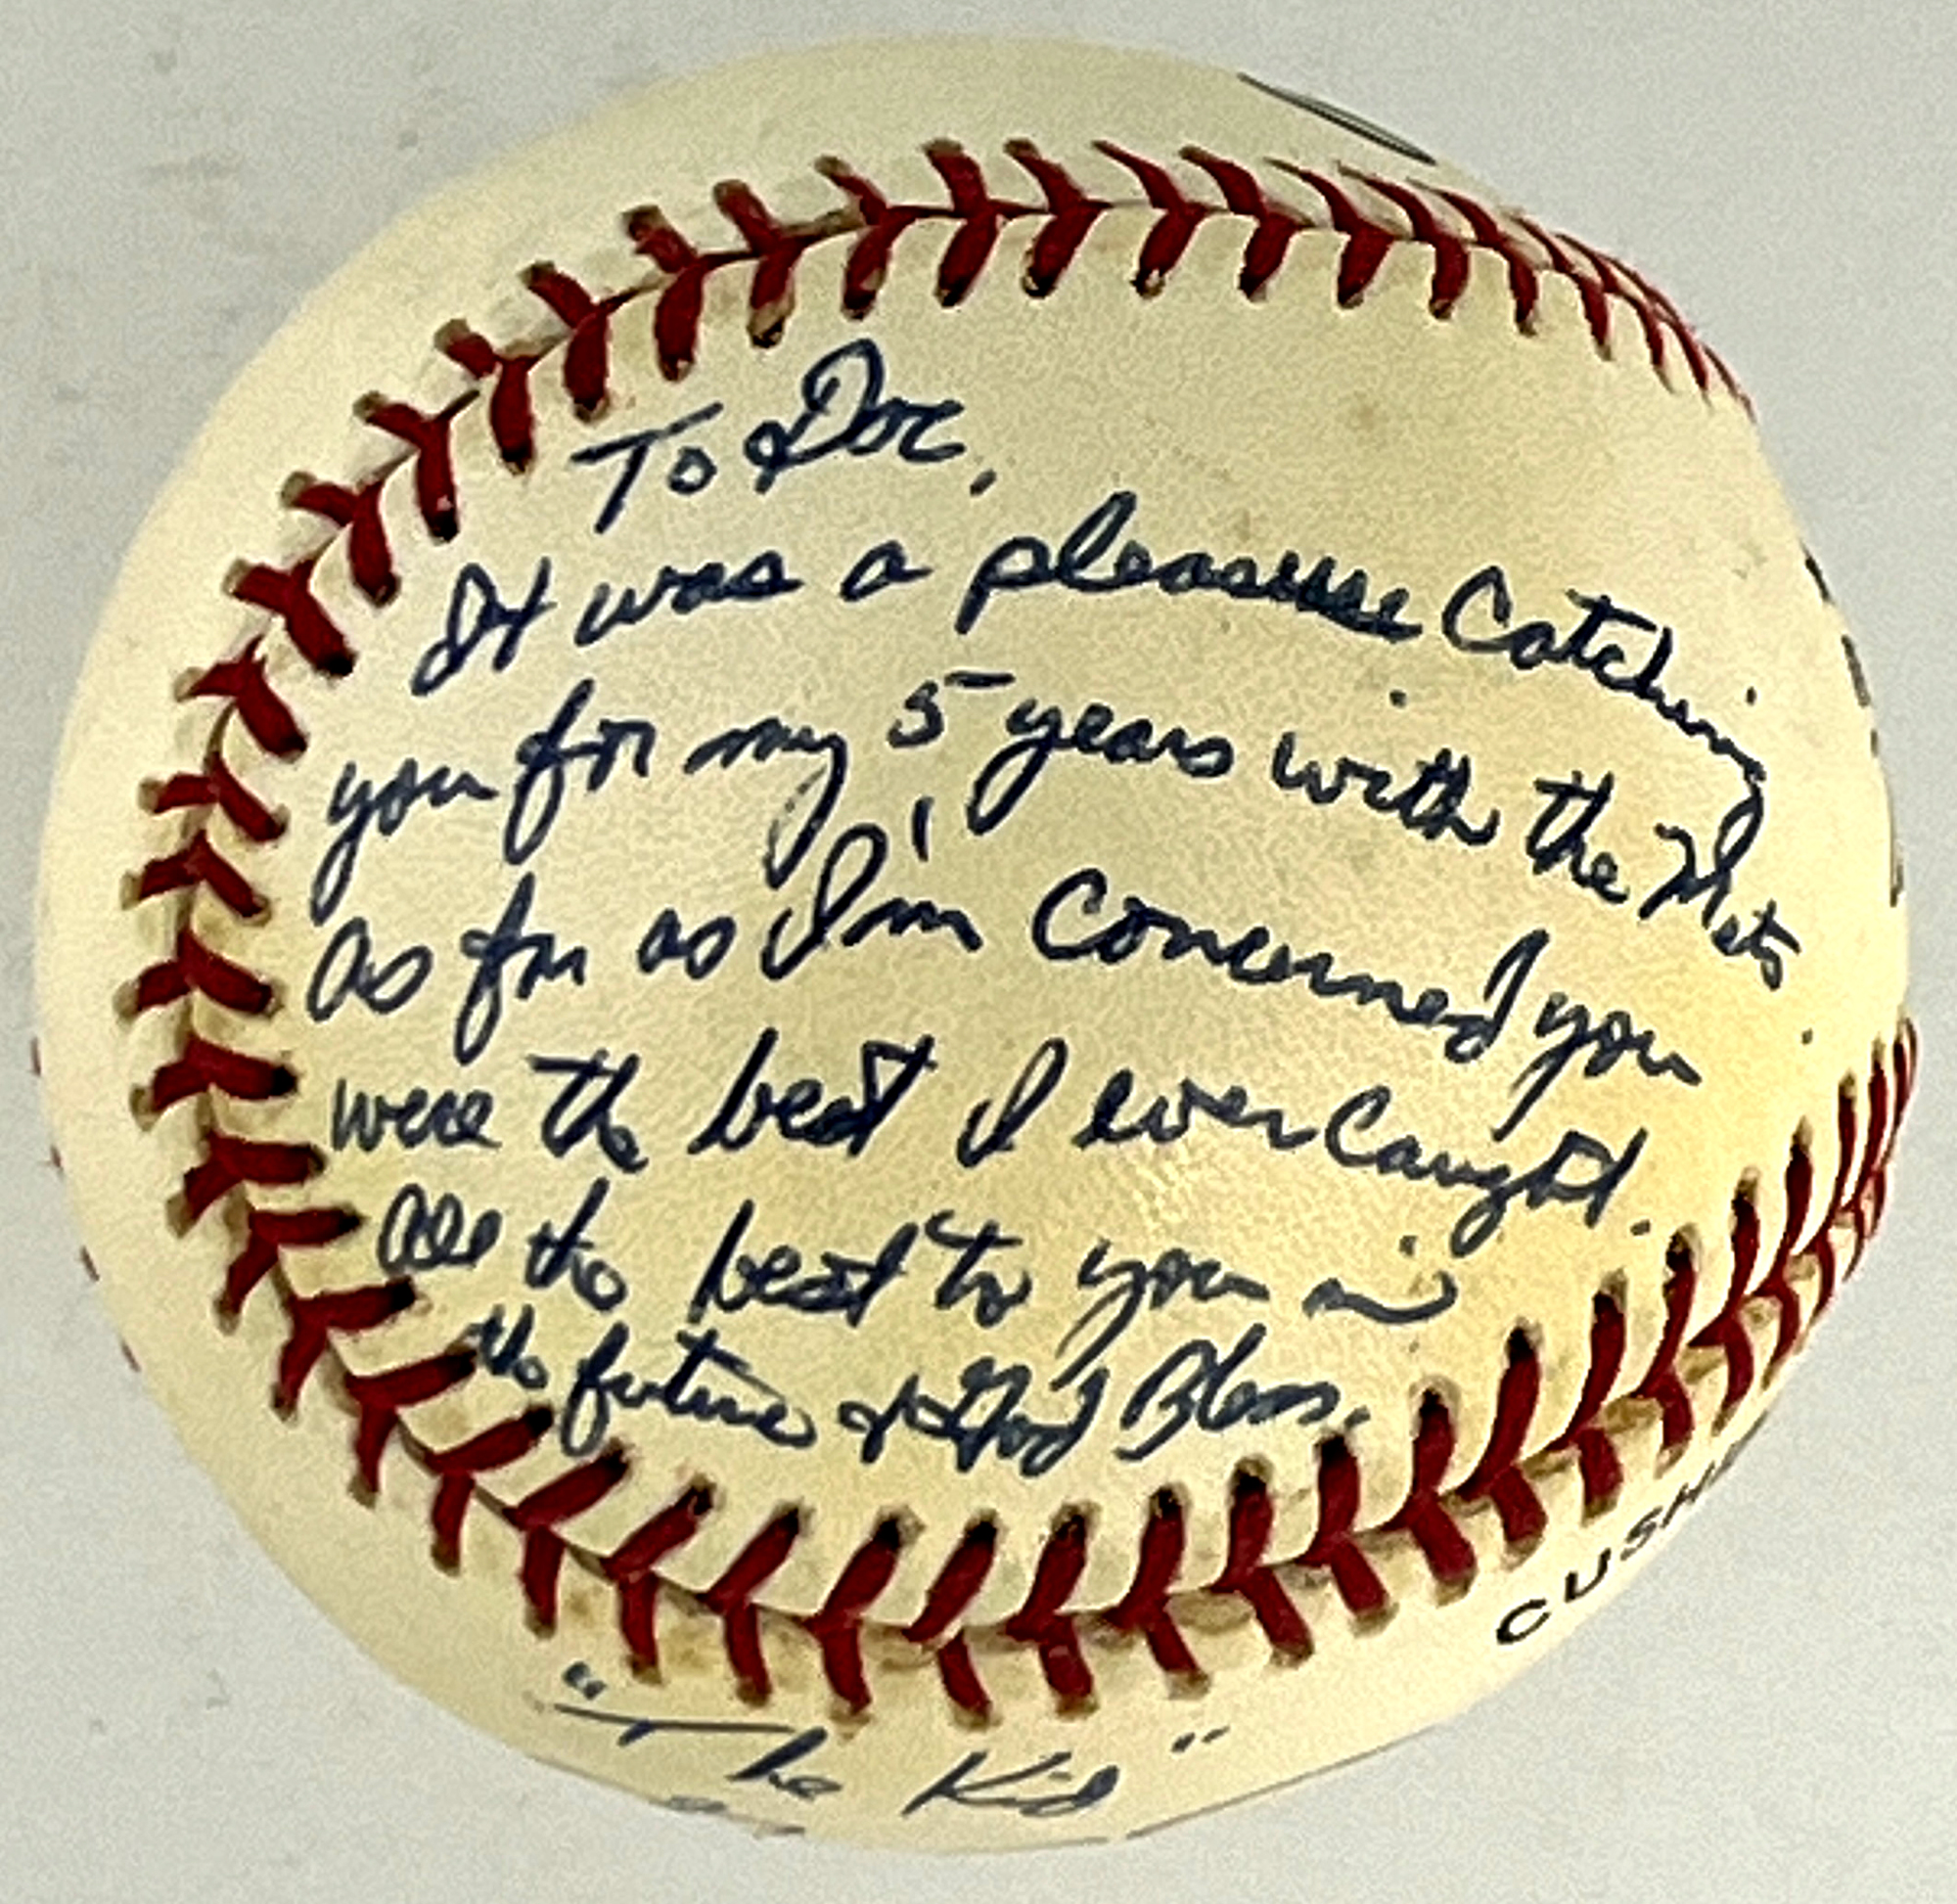 To Doc,
It was a pleasure Catching
you for my 5 years with the Mets
as far as I'm Concerned you
were the best I ever Caught.
All the best to you in
the future & God Bless.
"The Kid"
CUSH